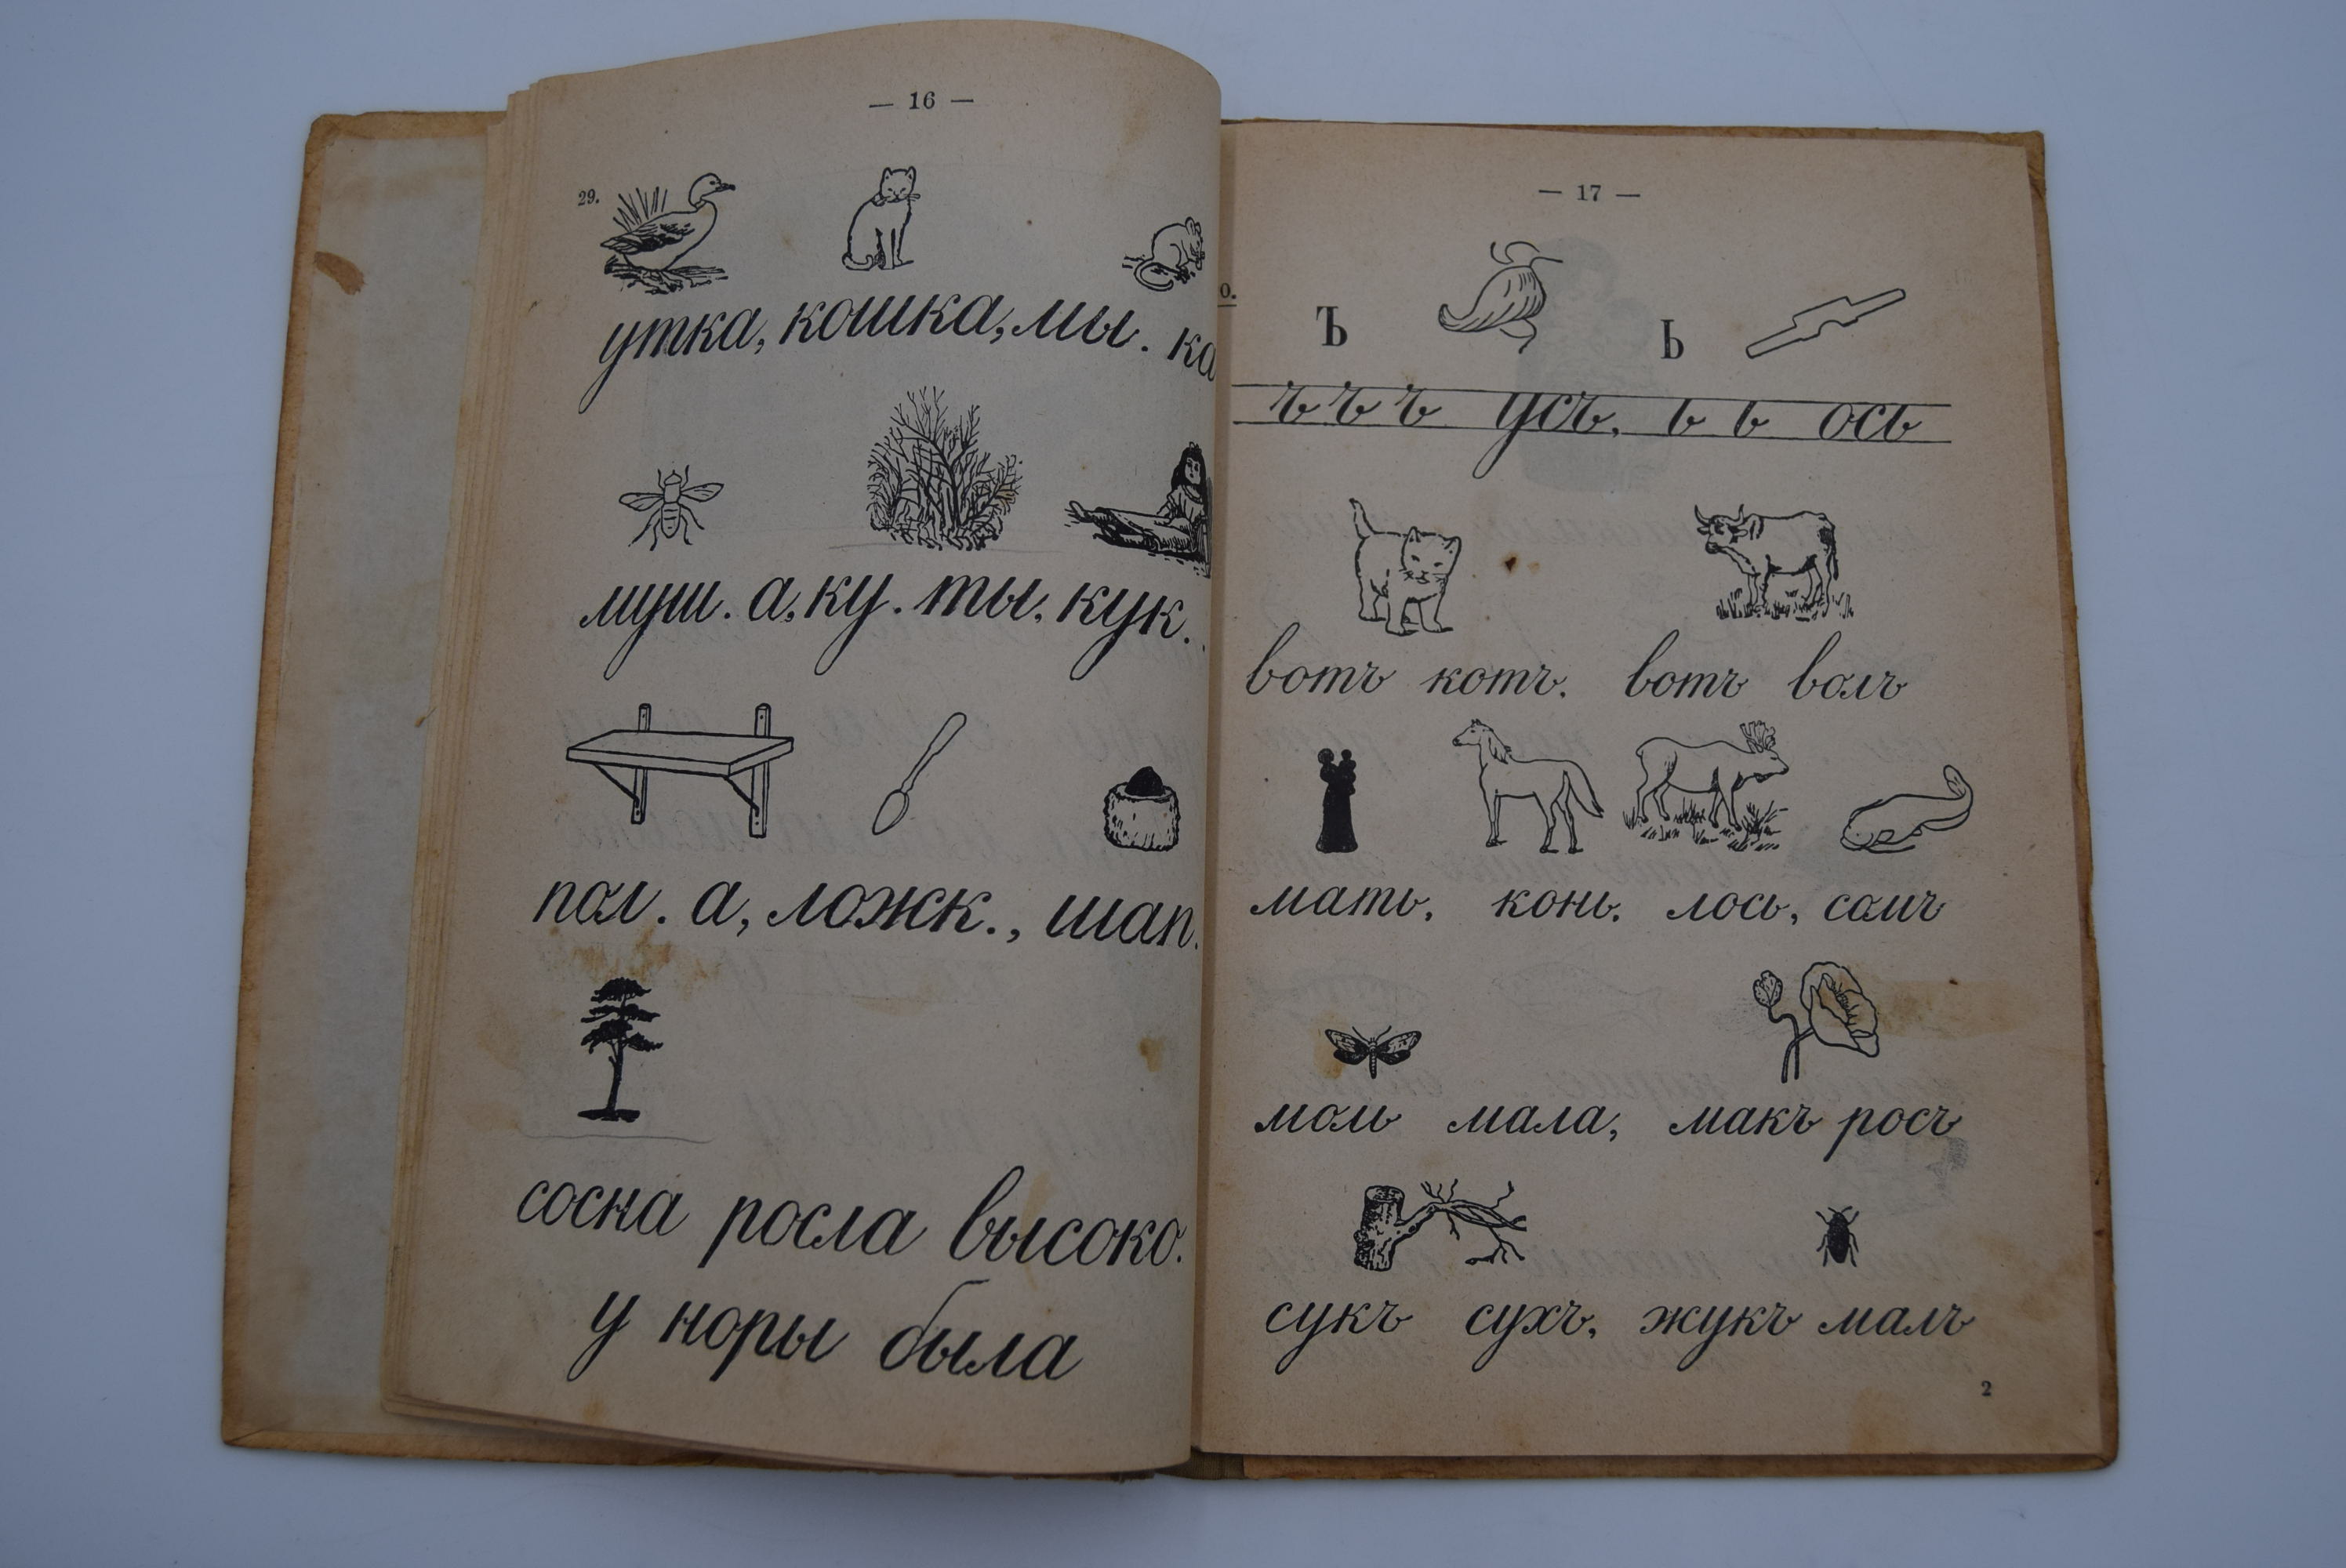 — 16 —
29.
утка, кошка, мы . ка
муш . а, ку . ты, кук .
пол . а, ложк . , шап .
сосна росла высоко.
у норы была
— 17 —
0.
Ъ Ь
ъ ъ ъ усъ, ь ь ось
вотъ котъ. вотъ волъ
мать, конь, лось, сомъ
моль мала, макъ росъ
сукъ сухъ, жукъ малъ
2